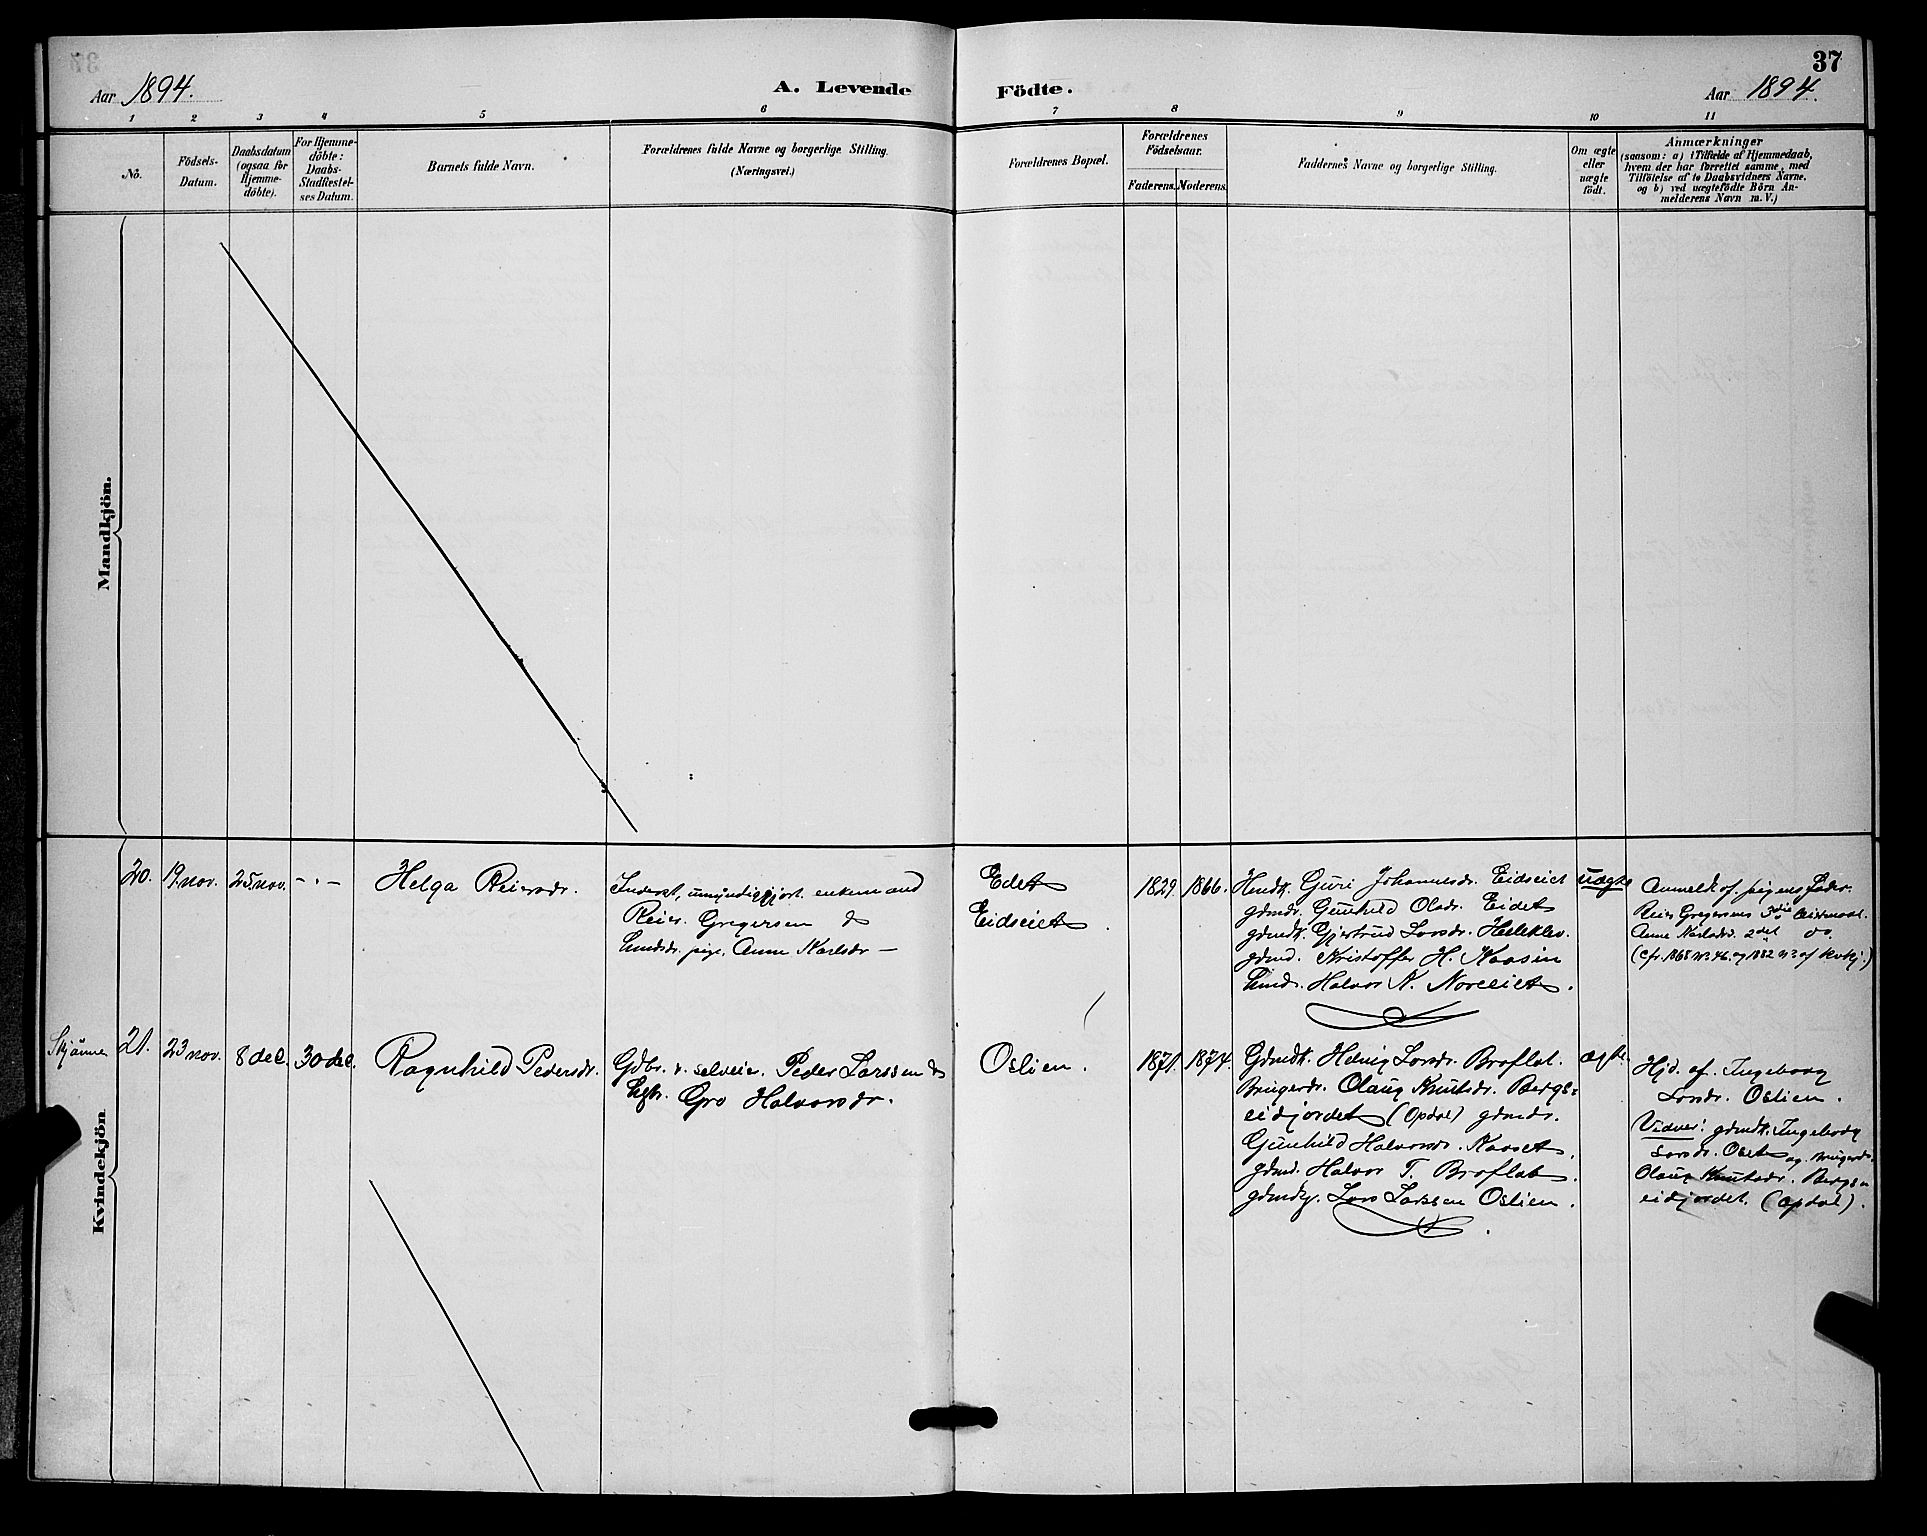 37
Aar 1894.
A. Levende Födte.
Aar 1894.
1 2 3 4 5 6 7 8 9 10 11
No.
Födsels-
Datum.
Daabsdatum
(ogsaa for
Hjemme-
döbte).
For Hjemme-
döbte:
Daabs-
Stadfestel-
ses Datum.
Barnets fulde Navn.
Forældrenes fulde Navne og borgerlige Stilling.
(Næringsvei.)
Forældrenes Bopæl.
Forældrenes
Födselsaar.
Faderens. Moderens.
Faddernes Navne og borgerlige Stilling.
Om ægte
eller
uægte
født.
Anmærkninger
(saasom: a) i Tilfælde af Hjemmedaab,
hvem der har forrettet samme, med
Tilföielse af to Daabsvidners Navne.
og b) ved uægtefödte Börn An-
melderens Navn m. V.)
Mandkjön.
20. 19.nov. 25 nov. -.-
Helga Reiersdr.
Inderst, umyndiggjort. enkemand
Reier Gregersen &
pige. Anne Karlsdr —
Edet
Eidseiet.
1829. 1866.
Guri Johannesdr. Eidseiet
gdmdr. Gunhild Olsdr. Eidet
gdmdk. Gjertrud Larsdr.
gdmd. Kristoffer H. Kaasin
Halvor N. Noreeiet.
uægte
Anmeldt af pigens fader.
Reier Gregersens 3die leiermaal.
Anne Karlsdrs. 2det do.
Skjönne 21. 23 nov. 8 dec. 30 dec.
Ragnhild Pedersdr.
Gdbr. & selveier. Peder Larssen &
Gro Halvorsdr.
Oslien.
1871. 1874.
Gdmdk. Helvig Larsdr. Broflat.
Brugerdr. Olaug Knutsdr. Bergs=
eidjordet (Opdal) gdmdr.
Gunhild Halvorsdr. Kaaset.
gdmd. Halvor T. Broflat.
gdmdg. Lars Larssen Oslien.
ægte
Hjd. af. Ingeborg
Larsdr. Oslien.
Vidner: gdmdk. Ingeborg
Larsdr. Oset og Brugerdr.
Olaug Knutsdr. Bergs=
eidjordet. (Opdal).
Kvindekjön